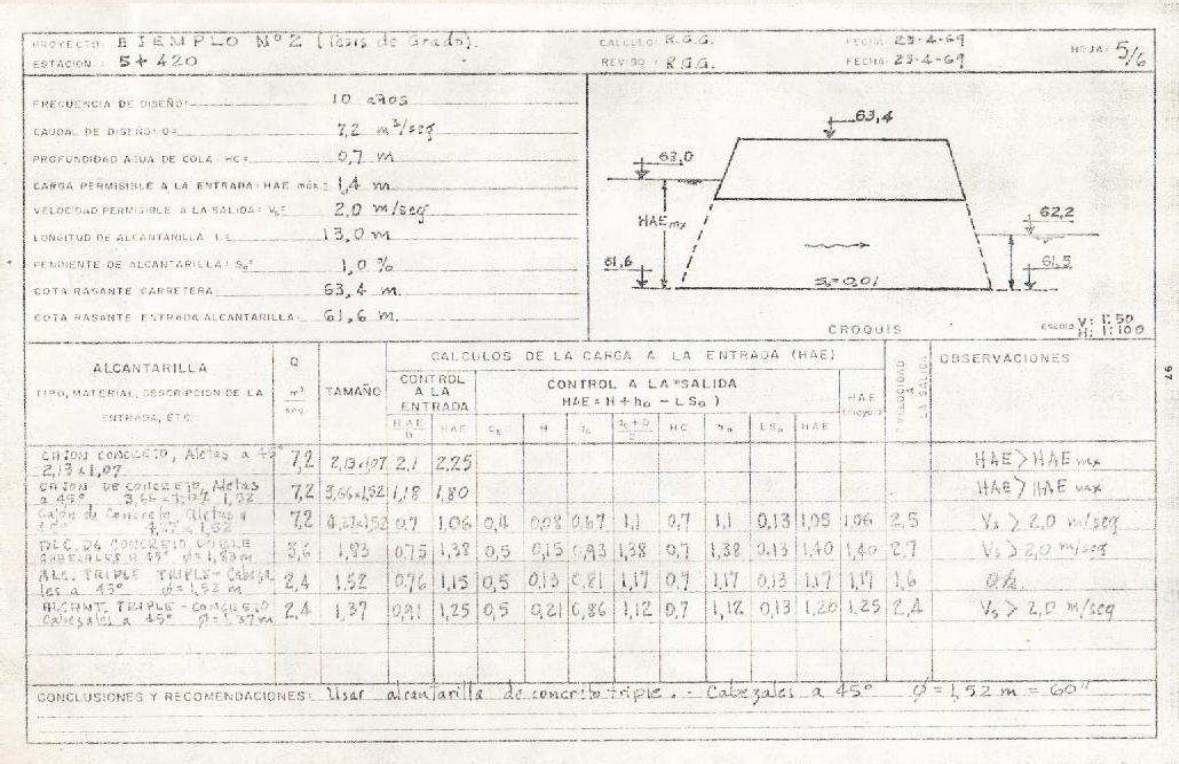 PROYECTO: EJEMPLO Nº2 (Tesis de Grado)
CALCULO: R.G.G.
FECHA: 23-4-69
HOJA: 5/6
ESTACION: 5+420
REVISO: R.G.G.
FECHA: 23-4-69
FRECUENCIA DE DISEÑO: 10 años
CAUDAL DE DISEÑO 7,2 m³/seg
PROFUNDIDAD AGUA DE COLA HC= 0,7 m
CARGA PERMISIBLE A LA ENTRADA: HAE máx= 1,4 m
VELOCIDAD PERMISIBLE A LA SALIDA: Vs= 2,0 m/seg
LONGITUD DE ALCANTARILLA L= 13,1 m
PENDIENTE DE ALCANTARILLA: So= 1,0 %
COTA RASANTE CARRETERA 63,4 m
COTA RASANTE ENTRADA ALCANTARILLA: 61,6 m.
63,4
63,0
HAE mx
61,6
62,2
61,5
So=0,01
CROQUIS
ESCALA V: 1:50
H: 1:100
97
ALCANTARILLA
TIPO, MATERIAL, DESCRIPCION DE LA
ENTRADA, ETC
Q
m³
seg
TAMAÑO
CALCULOS DE LA CARGA A LA ENTRADA (HAE)
CONTROL
A LA
ENTRADA
HAE
D
HAE
CONTROL A LA SALIDA
HAE = H + ho - LSo )
HC
ho
LSo
HAE
HAE
VELOCIDAD
A
LA SALIDA
OBSERVACIONES
Cajon Concreto, Aletas a 45°
2,13 x 1,07
7,2 2,13x1,07 2,1 2,25 HAE > HAE mx
Cajon de Concreto, Aletas
a 45° 1,52
7,2 3,66x1,52 1,18 1,80 HAE > HAE max
Cajon de Concreto, Aletas a
7,2 1,52 0,7 1,06 0,4 0,08 0,67 1,1 0,7 1,1 0,13 1,05 1,06 2,5 Vs > 2,0 m/seg
ALC. DE CONCRETO DOBLE
φ=1,83m
3,6 1,83 0,75 1,38 0,5 0,15 0,93 1,38 0,7 1,38 0,13 1,40 1,40 2,7 Vs > 2,0 m/seg
ALC. TRIPLE TRIPLE - Cabeza
les a 45° φ=1,52 m
2,4 1,52 0,76 1,15 0,5 0,13 0,81 1,17 0,7 1,17 0,13 1,17 1,17 1,6 o.k.
ALCANT. TRIPLE - CONCRETO
Cabezales a 45° φ=1,37m
2,4 1,37 0,91 1,25 0,5 0,21 0,86 1,12 0,7 1,12 0,13 1,20 1,25 2,4 Vs > 2,0 m/seg
CONCLUSIONES Y RECOMENDACIONES: Usar alcantarilla de concreto triple. - Cabezales a 45° φ=1,52 m = 60"